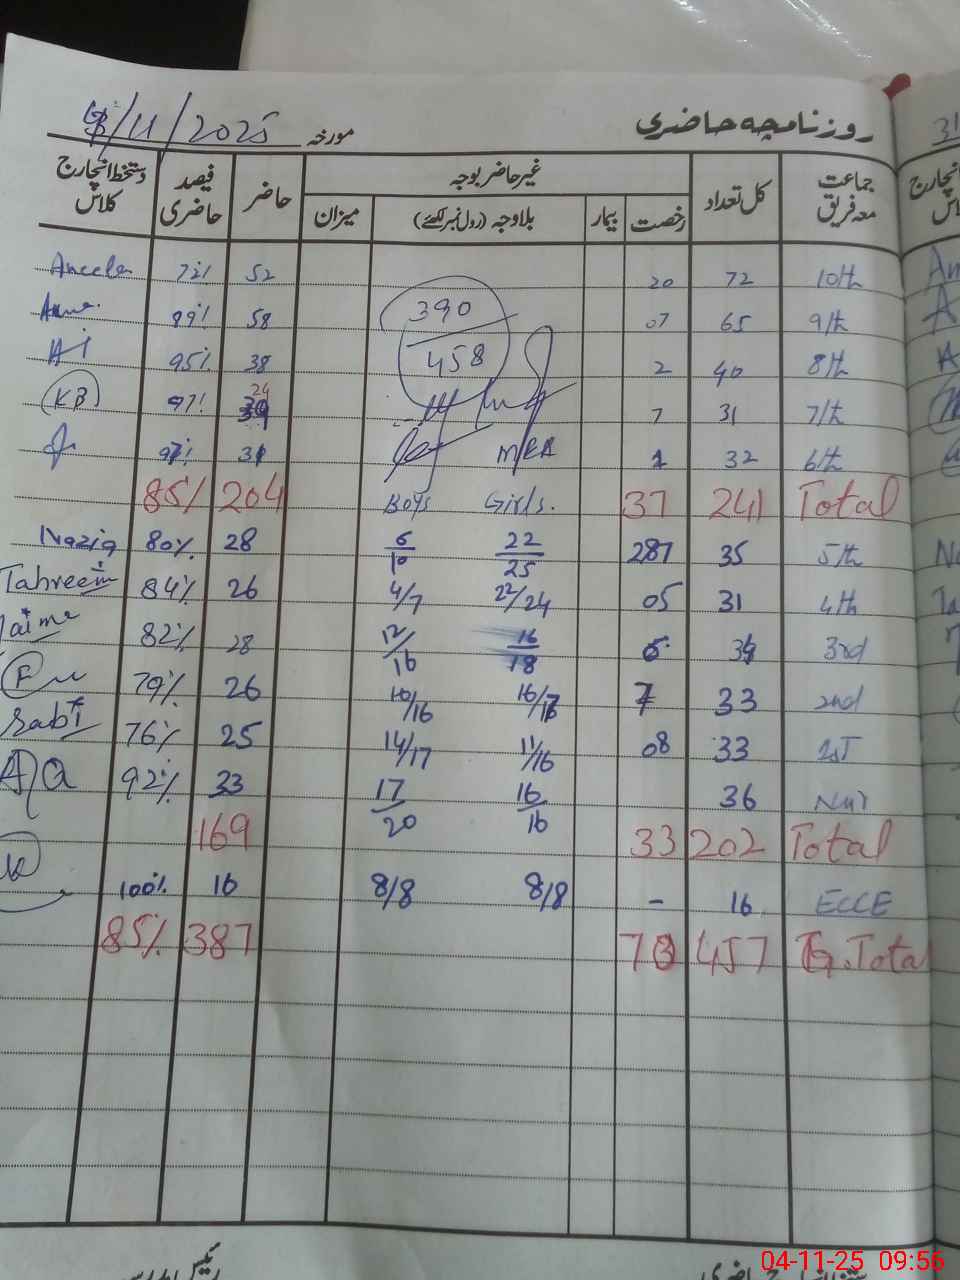 روزنامچہ حاضری مورخہ /11/2025
جماعت معہ فریق کل تعداد غیر حاضر بوجہ حاضر فیصد حاضری دستخط انچارج کلاس
رخصت بیمار بلاوجہ (رول نمبر لکھئے) میزان
10th 72 20 52 72%
9th 65 07 390 58 89%
8th 40 2 458 38 95%
7th 31 7 24 97% KB
6th 32 1 31 97%
Total 241 37 Boys Girls. 204 85%
5th 35 6/10 22/25 28 80% Nazia
4th 31 05 4/7 22/24 26 84% Tahreem
3rd 34 6 12/16 16/18 28 82%
2nd 33 7 10/16 16/17 26 79%
1ST 33 08 14/17 11/16 25 76% Rabi
Nur 36 17/20 16/16 33 92%
Total 202 33 169
ECCE 16 - 8/8 8/8 16 100%
G.Total 457 70 387 85%
رئیس مدرسہ
04-11-25 09:56